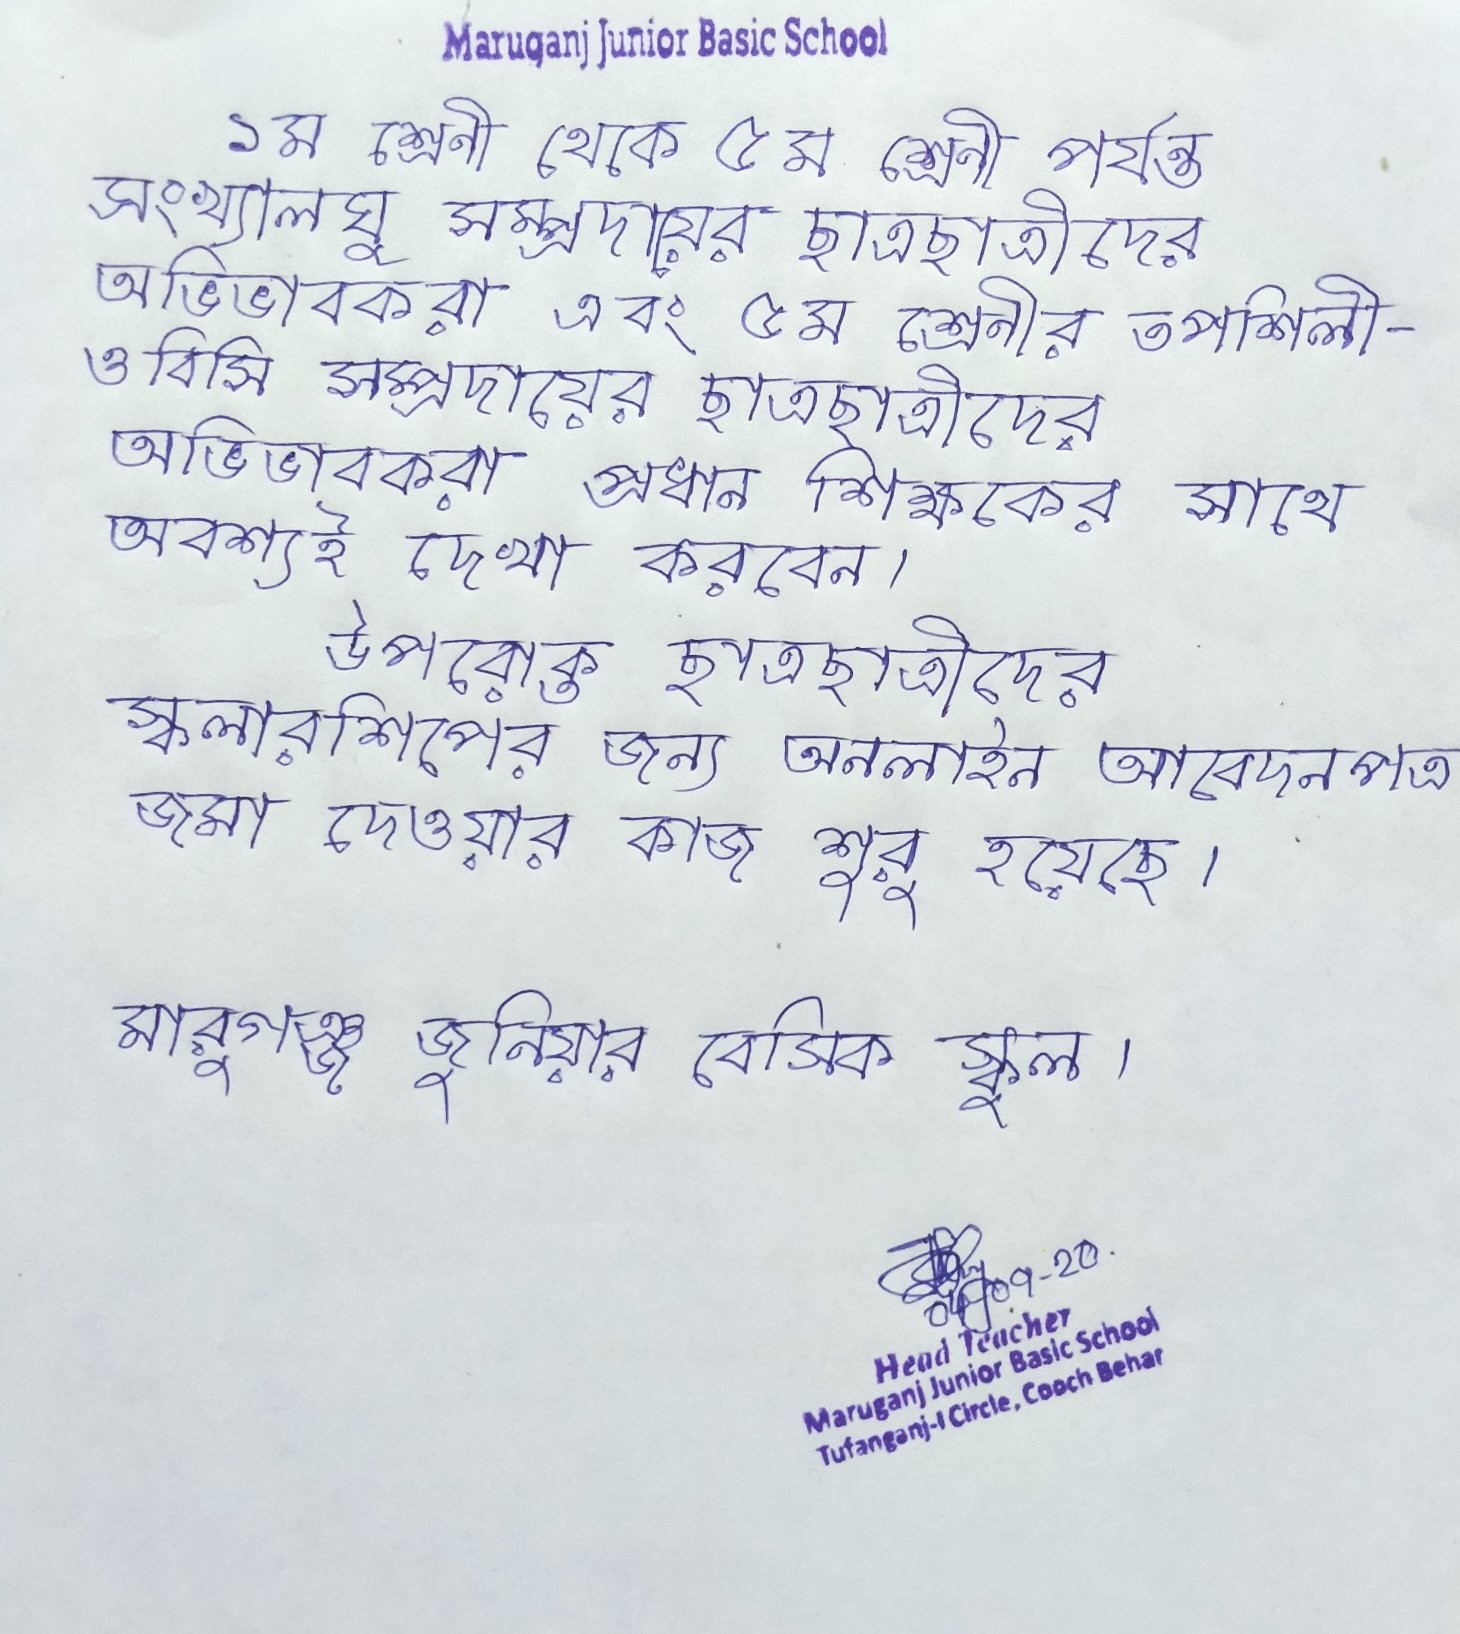 Maruganj Junior Basic School
১ম শ্রেনী থেকে ৫ম শ্রেনী পর্যন্ত
সংখ্যালঘু সম্প্রদায়ের ছাত্রছাত্রীদের
অভিভাবকরা এবং ৫ম শ্রেনীর তপশিলী-
ওবিসি সম্প্রদায়ের ছাত্রছাত্রীদের
অভিভাবকরা প্রধান শিক্ষকের সাথে
অবশ্যই দেখা করবেন।
উপরোক্ত ছাত্রছাত্রীদের
স্কলারশিপের জন্য অনলাইন আবেদনপত্র
জমা দেওয়ার কাজ শুরু হয়েছে।
মারুগঞ্জ জুনিয়ার বেসিক স্কুল।
Head Teacher
Maruganj Junior Basic School
Tufanganj-I Circle, Cooch Behar